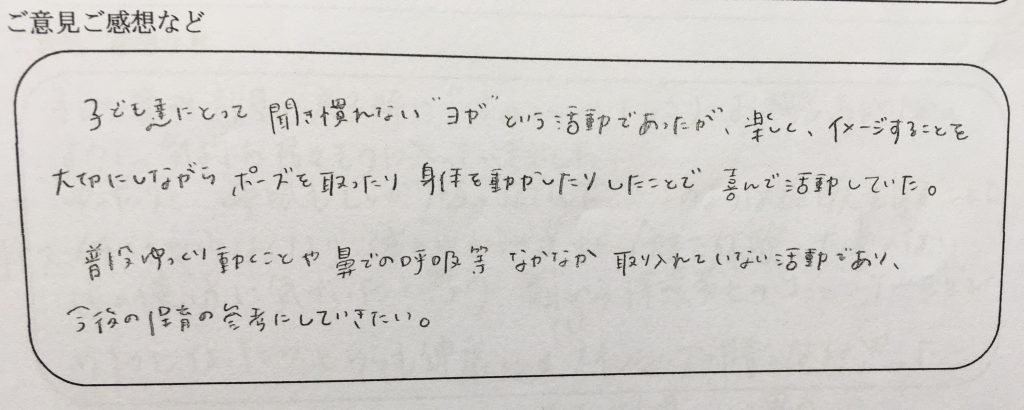 ご意見ご感想など
子ども達にとって 聞き慣れない"ヨガ"という活動であったが、楽しく、イメージすることを
大切にしながら ポーズを取ったり 身体を動かしたりしたことで 喜んで活動していた。
普段ゆっくり動くことや 鼻での呼吸等 なかなか 取り入れていない活動であり、
今後の保育の参考にしていきたい。